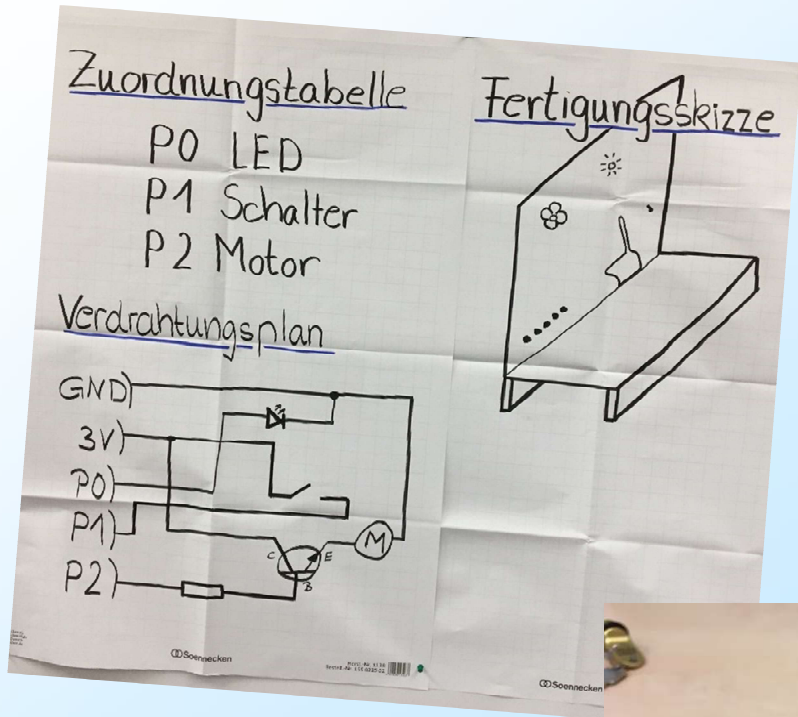 Zuordnungstabelle
P0 LED
P1 Schalter
P2 Motor
Verdrahtungsplan
GND
3V
P0
P1
P2
C
E
B
M
Soennecken
Fertigungsskizze
Soennecken